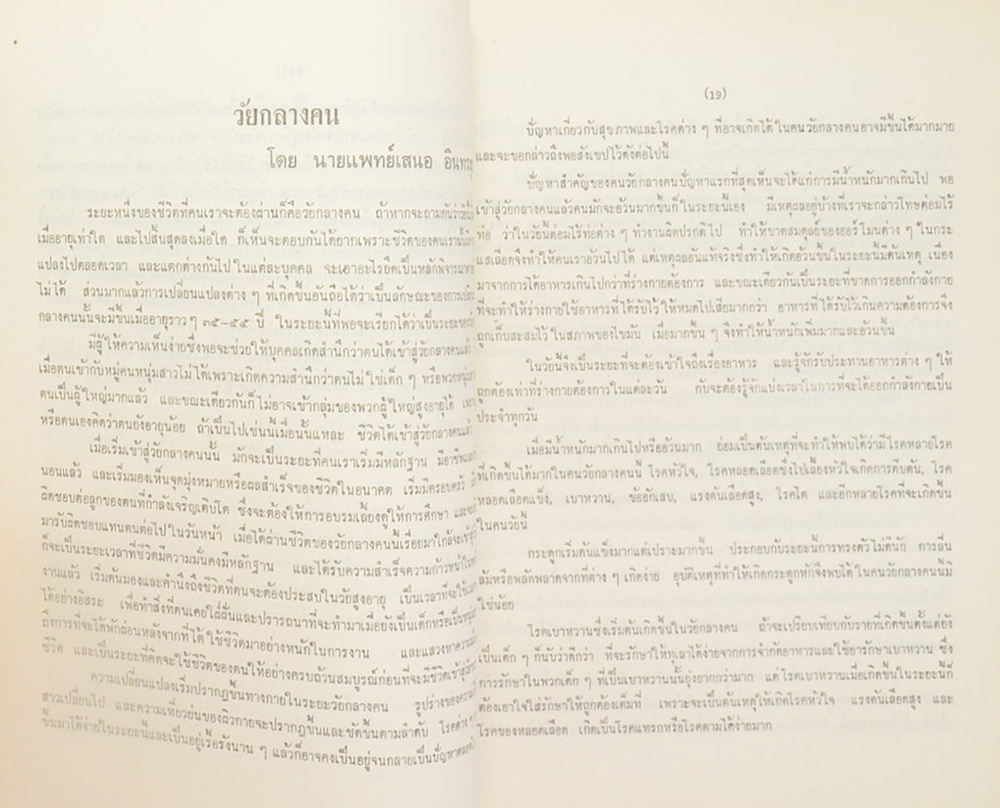 วัยกลางคน
โดย นายแพทย์เสนอ อินทร
ระยะหนึ่งของชีวิตที่คนเราจะต้องผ่านก็คือวัยกลางคน ถ้าหากจะถามกันว่า
เมื่ออายุเท่าใด และไปสิ้นสุดลงเมื่อใด ก็เห็นจะตอบกันได้ยากเพราะชีวิตของคนเรา
แปลงไปตลอดเวลา และแตกต่างกันไปในแต่ละบุคคล จะเอาอะไรยึดเป็นหลักพิจารณา
ไม่ได้ ส่วนมากแล้วการเปลี่ยนแปลงต่าง ๆ ที่เกิดขึ้นอันถือได้ว่าเป็นลักษณะของการ
กลางคนนั้นจะมีขึ้นเมื่ออายุราว ๆ ๓๕-๔๕ ปี ในระยะนี้ที่พอจะเรียกได้ว่าเป็นระยะ
มีผู้ให้ความเห็นง่ายซึ่งพอจะช่วยให้บุคคลเกิดสำนึกว่าตนได้เข้าสู่วัยกลางคน
เมื่อตนเข้ากับหมู่คนหนุ่มสาวไม่ได้เพราะเกิดความสำนึกว่าตนไม่ใช่เด็ก ๆ หรือพวกหนุ่ม
ตนเป็นผู้ใหญ่มากแล้ว และขณะเดียวกันก็ไม่อาจเข้ากลุ่มของพวกผู้ใหญ่สูงอายุได้
หรือตนเองคิดว่าตนยังอายุน้อย ถ้าเป็นไปเช่นนี้เมื่อนั้นแหละ ชีวิตได้เข้าสู่วัยกลางคน
เมื่อเริ่มเข้าสู่วัยกลางคนนั้น มักจะเป็นระยะที่คนเราเริ่มมีหลักฐาน มีอาชีพ
นอนแล้ว และเริ่มมองเห็นจุดมุ่งหมายหรือผลสำเร็จของชีวิตในอนาคต เริ่มมีครอบครัว
ผิดชอบต่อลูกของตนที่กำลังเจริญเติบโต ซึ่งจะต้องให้การอบรมเลี้ยงดูให้การศึกษา
มารับผิดชอบแทนตนต่อไปในวันหน้า เมื่อได้ผ่านชีวิตของวัยกลางคนนี้เรื่อยมาใกล้จะ
ก็จะเป็นระยะเวลาที่ชีวิตมีความมั่นคงมีหลักฐาน และได้รับความสำเร็จความก้าวหน้า
งานแล้ว เริ่มต้นมองและคำนึงถึงชีวิตที่ตนจะต้องประสบในวัยสูงอายุ เป็นเวลาที่จะใช้
ได้อย่างอิสระ เพื่อทำสิ่งที่ตนเคยใฝ่ฝันและปรารถนาที่จะทำมาเมื่อยังเป็นเด็กหรือเป็น
ถึงการที่จะได้พักผ่อนหลังจากที่ได้ใช้ชีวิตมาอย่างหนักในการงาน และแสวงหาความ
ชีวิต และเป็นระยะที่คิดจะใช้ชีวิตของตนให้อย่างครบถ้วนสมบูรณ์ก่อนที่จะมีชีวิตเข้าสู่
ความเปลี่ยนแปลงเริ่มปรากฏขึ้นทางกายในระยะวัยกลางคน รูปร่างของความ
สาวเปลี่ยนไป และความเหี่ยวย่นของผิวกายจะปรากฏขึ้นและชัดขึ้นตามลำดับ โรคต่าง ๆ
ขึ้นมาได้ง่ายในระยะนี้และเป็นอยู่เรื้อรังนาน ๆ แล้วก็อาจคงเป็นอยู่จนกลายเป็นปัญหา
(19)
ปัญหาเกี่ยวกับสุขภาพและโรคต่าง ๆ ที่อาจเกิดได้ในคนวัยกลางคนอาจมีขึ้นได้มากมาย
และจะขอกล่าวถึงพอสังเขปไว้ดังต่อไปนี้
ปัญหาสำคัญของคนวัยกลางคนปัญหาแรกที่สุดเห็นจะได้แก่การมีน้ำหนักมากเกินไป พอ
เข้าสู่วัยกลางคนแล้วคนมักจะอ้วนมากขึ้นก็ในระยะนี้เอง มีเหตุผลอยู่บ้างที่เราจะกล่าวโทษต่อมไร้
ท่อ ว่าในวัยนี้ต่อมไร้ท่อต่าง ๆ ทำงานผิดปรกติไป ทำให้ขาดสมดุลย์ของฮอร์โมนต่าง ๆ ในกระ
แสเลือดจึงทำให้คนเราอ้วนไปได้ แต่เหตุผลอันแท้จริงซึ่งทำให้เกิดอ้วนขึ้นในระยะนี้มีต้นเหตุ เนื่อง
มาจากการได้อาหารเกินไปกว่าที่ร่างกายต้องการ และขณะเดียวกันเป็นระยะที่ขาดการออกกำลังกาย
ที่จะทำให้ร่างกายใช้อาหารที่ได้รับไว้ให้หมดไปเสียมากกว่า อาหารที่ได้รับไว้เกินความต้องการจึง
ถูกเก็บสะสมไว้ในสภาพของไขมัน เมื่อมากขึ้น ๆ จึงทำให้น้ำหนักเพิ่มมากและอ้วนขึ้น
ในวัยนี้จึงเป็นระยะที่จะต้องเข้าใจถึงเรื่องอาหาร และรู้จักรับประทานอาหารต่าง ๆ ให้
ถูกต้องเท่าที่ร่างกายต้องการในแต่ละวัน กับจะต้องรู้จักแบ่งเวลาในการที่จะได้ออกกำลังกายเป็น
ประจำทุกวัน
เมื่อมีน้ำหนักมากเกินไปหรืออ้วนมาก ย่อมเป็นต้นเหตุที่จะทำให้พบได้ว่ามีโรคหลายโรค
ที่เกิดขึ้นได้มากในคนวัยกลางคนนี้ โรคหัวใจ, โรคหลอดเลือดซึ่งไปเลี้ยงหัวใจเกิดการตีบตัน, โรค
หลอดเลือดแข็ง, เบาหวาน, ข้ออักเสบ, แรงดันเลือดสูง, โรคไต และอีกหลายโรคที่จะเกิดขึ้น
ในคนวัยนี้
กระดูกเริ่มต้นแข็งมากแต่เปราะมากขึ้น ประกอบกับระยะนี้การทรงตัวไม่ดีนัก การลื่น
ล้มหรือพลัดพลาดจากที่ต่าง ๆ เกิดง่าย อุบัติเหตุที่ทำให้เกิดกระดูกหักจึงพบได้ในคนวัยกลางคนนี้มิ
ใช่น้อย
โรคเบาหวานซึ่งเริ่มต้นเกิดขึ้นในวัยกลางคน ถ้าจะเปรียบเทียบกับรายที่เกิดขึ้นตั้งแต่ยัง
เป็นเด็ก ๆ ก็นับว่าดีกว่า ที่จะรักษาให้ทุเลาได้ง่ายจากการจำกัดอาหารและใช้ยารักษาเบาหวาน ซึ่ง
การรักษาในพวกเด็ก ๆ ที่เป็นเบาหวานนั้นยุ่งยากกว่ามาก แต่โรคเบาหวานเมื่อเกิดขึ้นในระยะนี้ก็
ต้องเอาใจใส่รักษาให้ถูกต้องเต็มที่ เพราะจะเป็นต้นเหตุให้เกิดโรคหัวใจ แรงดันเลือดสูง และ
โรคของหลอดเลือด เกิดเป็นโรคแทรกหรือโรคตามได้ง่ายมาก